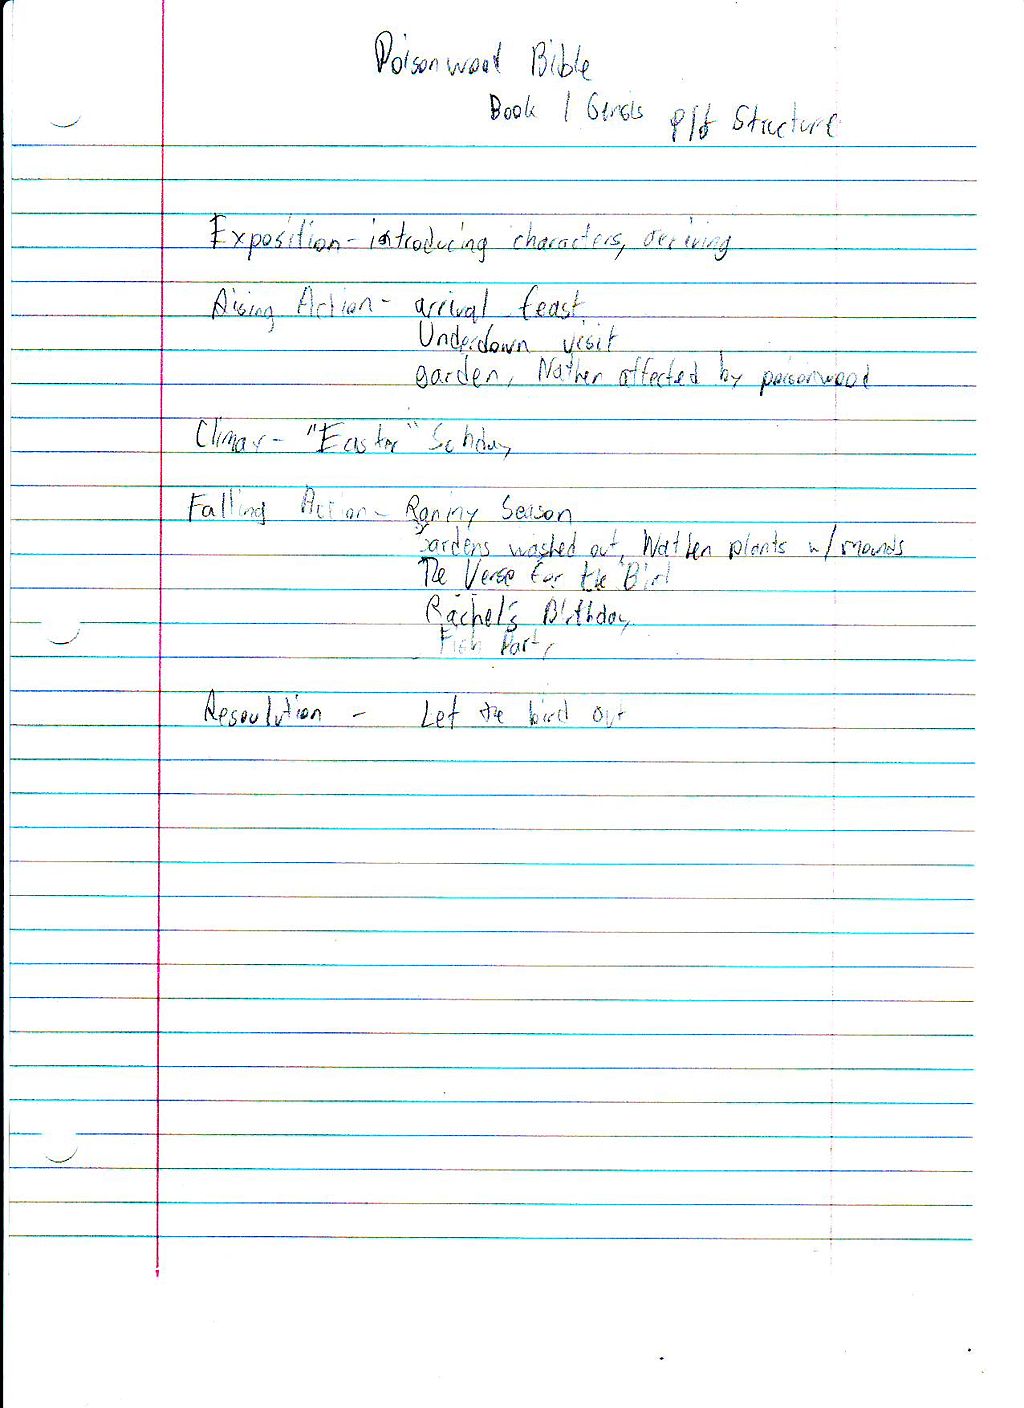 Poisonwood Bible
Book 1 Gensis Plot Structure
Exposition - introducing characters, arriving
Rising Action - arrival feast
Underdown visit
garden, Nathen affected by poisonwood
Climax - "Easter"
Falling Action - Raniny Season
Gardens washed out, Nathen plants w/ mounds
The Verse for the Bird
Rachel's Birthday
Fish Party
Resoulution - Let the bird out